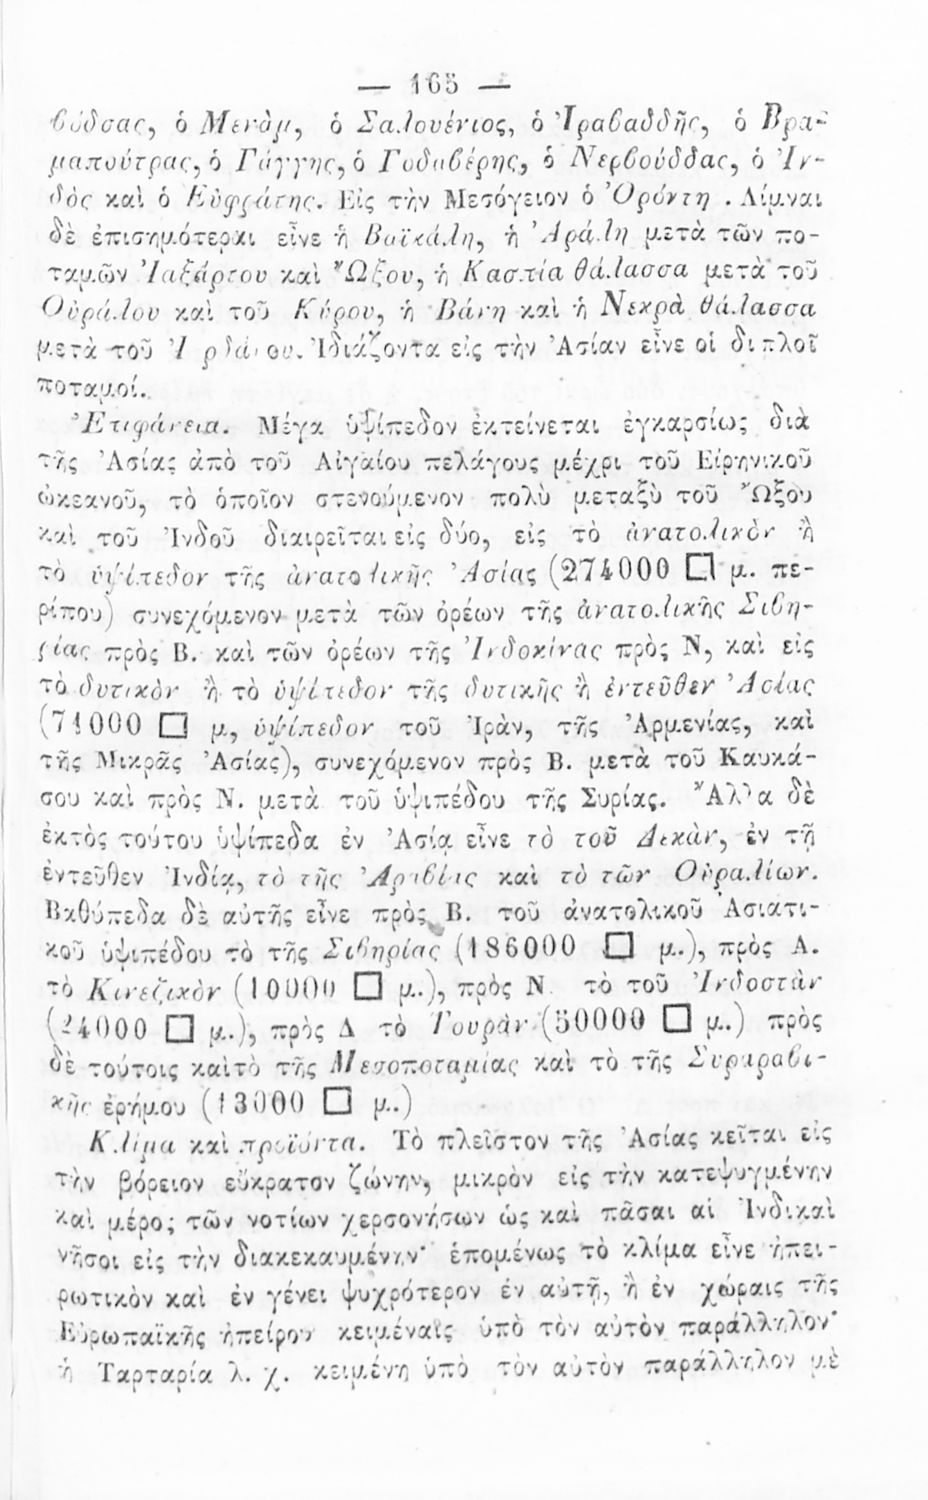 — 165 —
βόδσας, ὁ Μενὰμ, ὁ Σαλουένιος, ὁ Ἰραβαδδῆς, ὁ Βρα-
μαπούτρας, ὁ Γάγγης, ὁ Γοδαβέρης, ὁ Νερβούδδας, ὁ Ἰν-
δὸς καὶ ὁ Εὐφράτης. Εἰς τὴν Μεσόγειον ὁ Ὀρόντη . Λίμναι
δὲ ἐπισημότεραι εἶνε ἡ Βαϊκάλη, ἡ Ἀράλη μετὰ τῶν πο-
ταμῶν Ἰαξάρτου καὶ Ὤξου, ἡ Κασπία θάλασσα μετὰ τοῦ
Οὐράλου καὶ τοῦ Κύρου, ἡ Βάνη καὶ ἡ Νεκρὰ θάλασσα
μετὰ τοῦ Ἰορδάνου. Ἰδιάζοντα εἰς τὴν Ἀσίαν εἶνε οἱ διπλοῖ
ποταμοί.
Ἐπιφάνεια. Μέγα ὑψίπεδον ἐκτείνεται ἐγκαρσίως διὰ
τῆς Ἀσίας ἀπὸ τοῦ Αἰγαίου πελάγους μέχρι τοῦ Εἰρηνικοῦ
ὠκεανοῦ, τὸ ὁποῖον στενούμενον πολὺ μεταξὺ τοῦ Ὤξου
καὶ τοῦ Ἰνδοῦ διαιρεῖται εἰς δύο, εἰς τὸ ἀνατολικὸν ἢ
τὸ ὑψίπεδον τῆς ἀνατολικῆς Ἀσίας (274000 □ μ. πε-
ρίπου) συνεχόμενον μετὰ τῶν ὀρέων τῆς ἀνατολικῆς Σιβη-
ρίας πρὸς Β. καὶ τῶν ὀρέων τῆς Ἰνδοκίνας πρὸς Ν, καὶ εἰς
τὸ δυτικὸν ἢ τὸ ὑψίπεδον τῆς δυτικῆς ἢ ἐντεῦθεν Ἀσίας
(71000 □ μ, ὑψίπεδον τοῦ Ἰρὰν, τῆς Ἀρμενίας, καὶ
τῆς Μικρᾶς Ἀσίας), συνεχόμενον πρὸς Β. μετὰ τοῦ Καυκά-
σου καὶ πρὸς Ν. μετὰ τοῦ ὑψιπέδου τῆς Συρίας. Ἄλλα δὲ
ἐκτὸς τούτου ὑψίπεδα ἐν Ἀσίᾳ εἶνε τὸ τοῦ Δεκὰν, ἐν τῇ
ἐντεῦθεν Ἰνδίᾳ, τὸ τῆς Ἀραβίας καὶ τὸ τῶν Οὐραλίων.
Βαθύπεδα δὲ αὐτῆς εἶνε πρὸς Β. τοῦ ἀνατολικοῦ Ἀσιατι-
κοῦ ὑψιπέδου τὸ τῆς Σιβηρίας (186000 □ μ.), πρὸς Α.
τὸ Κινεζικὸν (10000 □ μ.), πρὸς Ν. τὸ τοῦ Ἰνδοστὰν
(24000 □ μ.), πρὸς Δ τὸ Τουρὰν (50000 □ μ.) πρὸς
δὲ τούτοις καὶτὸ τῆς Μεσοποταμίας καὶ τὸ τῆς Συραραβι-
κῆς ἐρήμου (13000 □ μ.)
Κλίμα καὶ προϊόντα. Τὸ πλεῖστον τῆς Ἀσίας κεῖται εἰς
τὴν βόρειον εὔκρατον ζώνην, μικρὸν εἰς τὴν κατεψυγμένην
καὶ μέρος τῶν νοτίων χερσονήσων ὡς καὶ πᾶσαι αἱ Ἰνδικαὶ
νῆσοι εἰς τὴν διακεκαυμένην· ἑπομένως τὸ κλίμα εἶνε ἠπει-
ρωτικὸν καὶ ἐν γένει ψυχρότερον ἐν αὐτῇ, ἢ ἐν χώραις τῆς
Εὐρωπαϊκῆς ἠπείρου κειμέναις ὑπὸ τὸν αὐτὸν παράλληλον·
ἡ Ταρταρία λ. χ. κειμένη ὑπὸ τὸν αὐτὸν παράλληλον μὲ